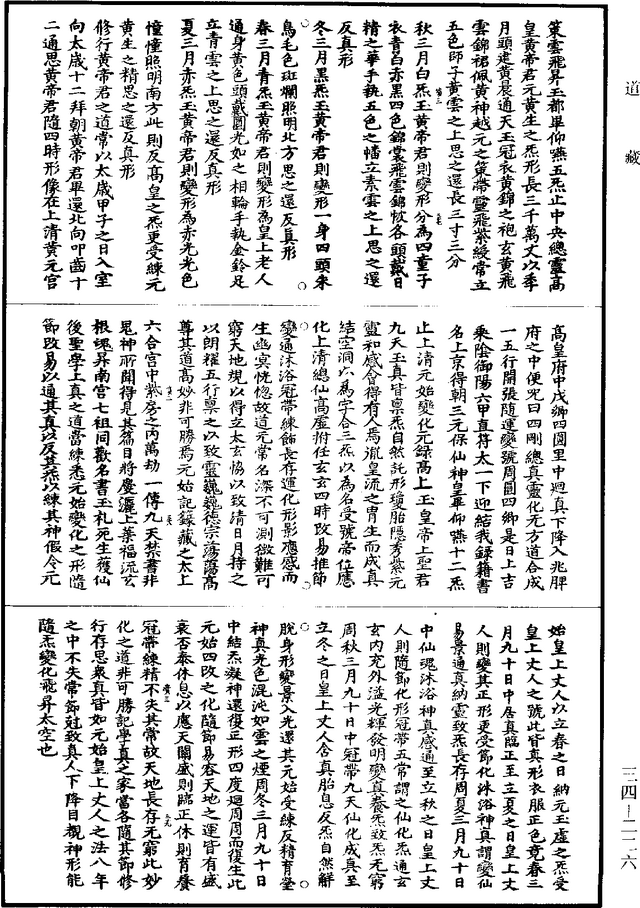 道藏
策雲飛昇玉都畢仰嚥五炁止中央總靈高
皇黃帝君元黃生之炁形長三千萬丈以季
月頭建黃晨通天玉冠衣黃錦之袍玄黃飛
雲錦裙佩黃神越元之策帶靈飛紫綬常立
五色師子黃雲之上思之還長三寸三分
秋三月白炁玉黃帝君則變形分為四童子
衣青白赤黑四色錦裳飛雲錦帔各頭戴日
精之華手執五色之幡立素雲之上思之還
反真形
冬三月黑炁玉黃帝君則變形一身四頭朱
鳥毛色斑斕照明北方思之還反真形
春三月青炁玉黃帝君則變形為皇上老人
通身黃色頭戴圓光如之相輪手執金鈴足
立青雲之上思之還反真形
夏三月赤炁玉黃帝君則變形為赤光光色
憧憧照明南方此則反高皇之炁更受練元
黃生之精思之還反真形
修行黃帝君之道常以太歲甲子之日入室
向太歲十二拜朝黃帝君畢還北向叩齒十
二通思黃帝君隨四時形像在上清黃元宮
高皇府中戊鄉四圓里中迴真下降入兆脾
府之中便呪曰四剛總真靈化元方道合成
一五行開張隨運變號周圓四鄉是日上吉
乘陰御陽六甲直符太一下迎結我録籍書
名上京得朝三元保仙神皇畢仰嚥十二炁
止上清元始變化元録高上玉皇帝上聖君
九天玉真皆禀炁自然託形瓊胎隱秀紫元
靈和感會得有人焉胤皇流之胄生而成真
結空洞以為字合三炁以為名受號帝位應
化上清總仙高虛拊任玄玄四時改易推節
變通沐浴冠帶練飾長存運化形影應感而
生幽冥恍惚故道元常名深不可測微難可
窮天地規以得立太玄恊以致清日月持之
以朗耀五行禀之以致靈巍巍德宗蕩蕩高
尊其道高妙非可勝焉元始記録藏之太上
六合宮中紫房之内萬劫一傳九天禁書非
見神所聞得見其篇日將慶灑上葉福流玄
根魂昇南宮七祖同歡名書玉札死生獲仙
後聖學上真之道當練悉元始變化之形隨
節改易以通其真以反其炁以練其神假令元
始皇上丈人以立春之日納元玉虛之炁受
皇上丈人之號此皆真形衣服正色竟春三
月九十日中居真臨正至立夏之日皇上丈
人則變其正形更受節化沐浴神真謂變仙
易景通真納靈致炁長存周夏三月九十日
中仙魂沐浴神真感通至立秋之日皇上丈
人則隨節化形冠帶五常謂之仙化炁通玄
玄内充外溢光輝發明變真養炁致炁无窮
周秋三月九十日中冠帶九天仙化成真至
立冬之日皇上丈人含真胎息反炁自然解
脫身形變景入光還其元始受練反精育瑩
神真光色混沌如雲之煙周冬三月九十日
中結炁凝神還復正形四度迴周周而復生此
元始四改之化隨節易容天地之運皆有盛
衰否泰休息以應天關盛則臨正休則育養
冠帶練精不失其常故天地長存无窮此妙
化之道非可勝記學真之家當各隨其節修
行存思衆真皆如元始皇上丈人之法八年
之中不失常節冠致真人下降目覩神形能
隨炁變化飛昇太空也
三四—二二六